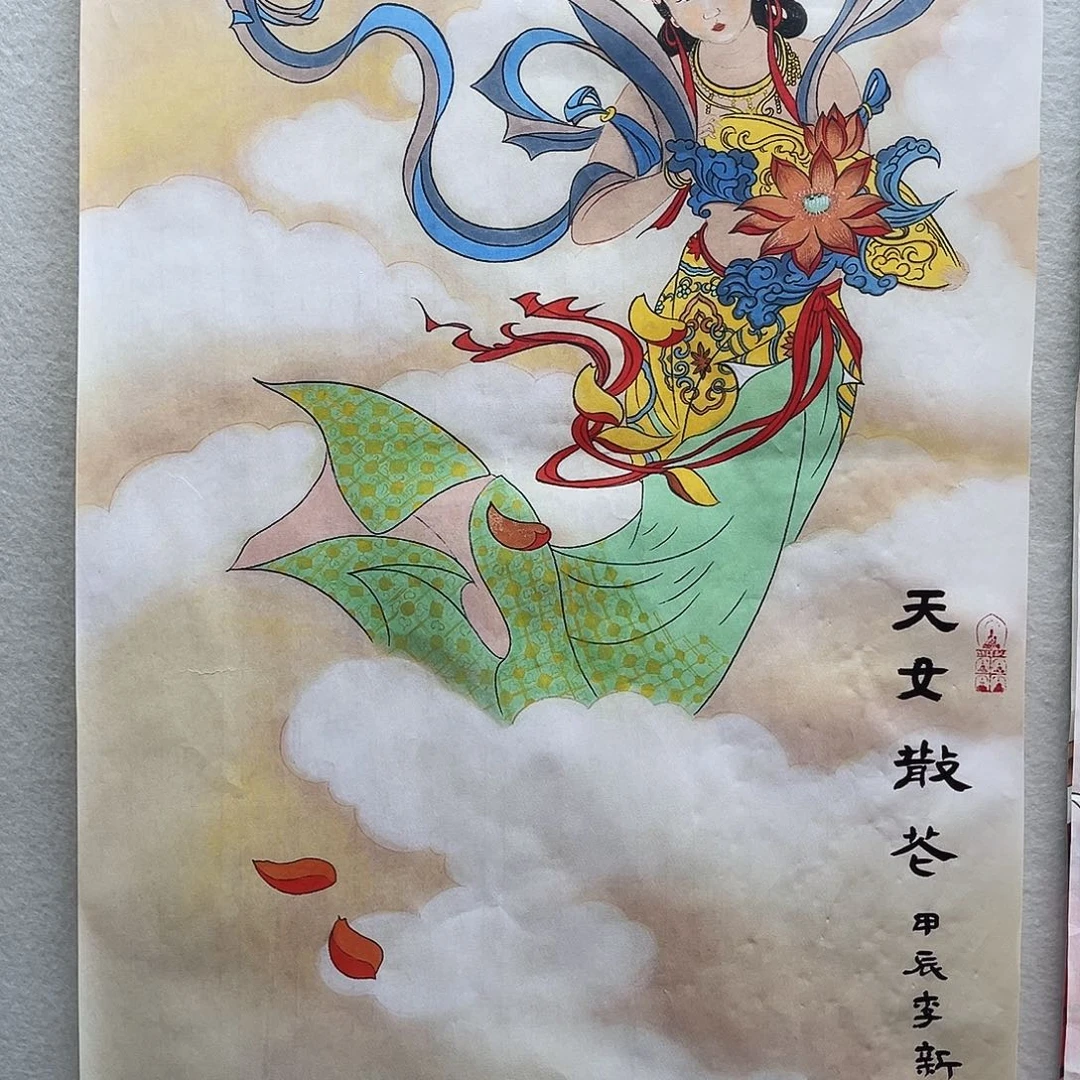 天女散花甲辰李新